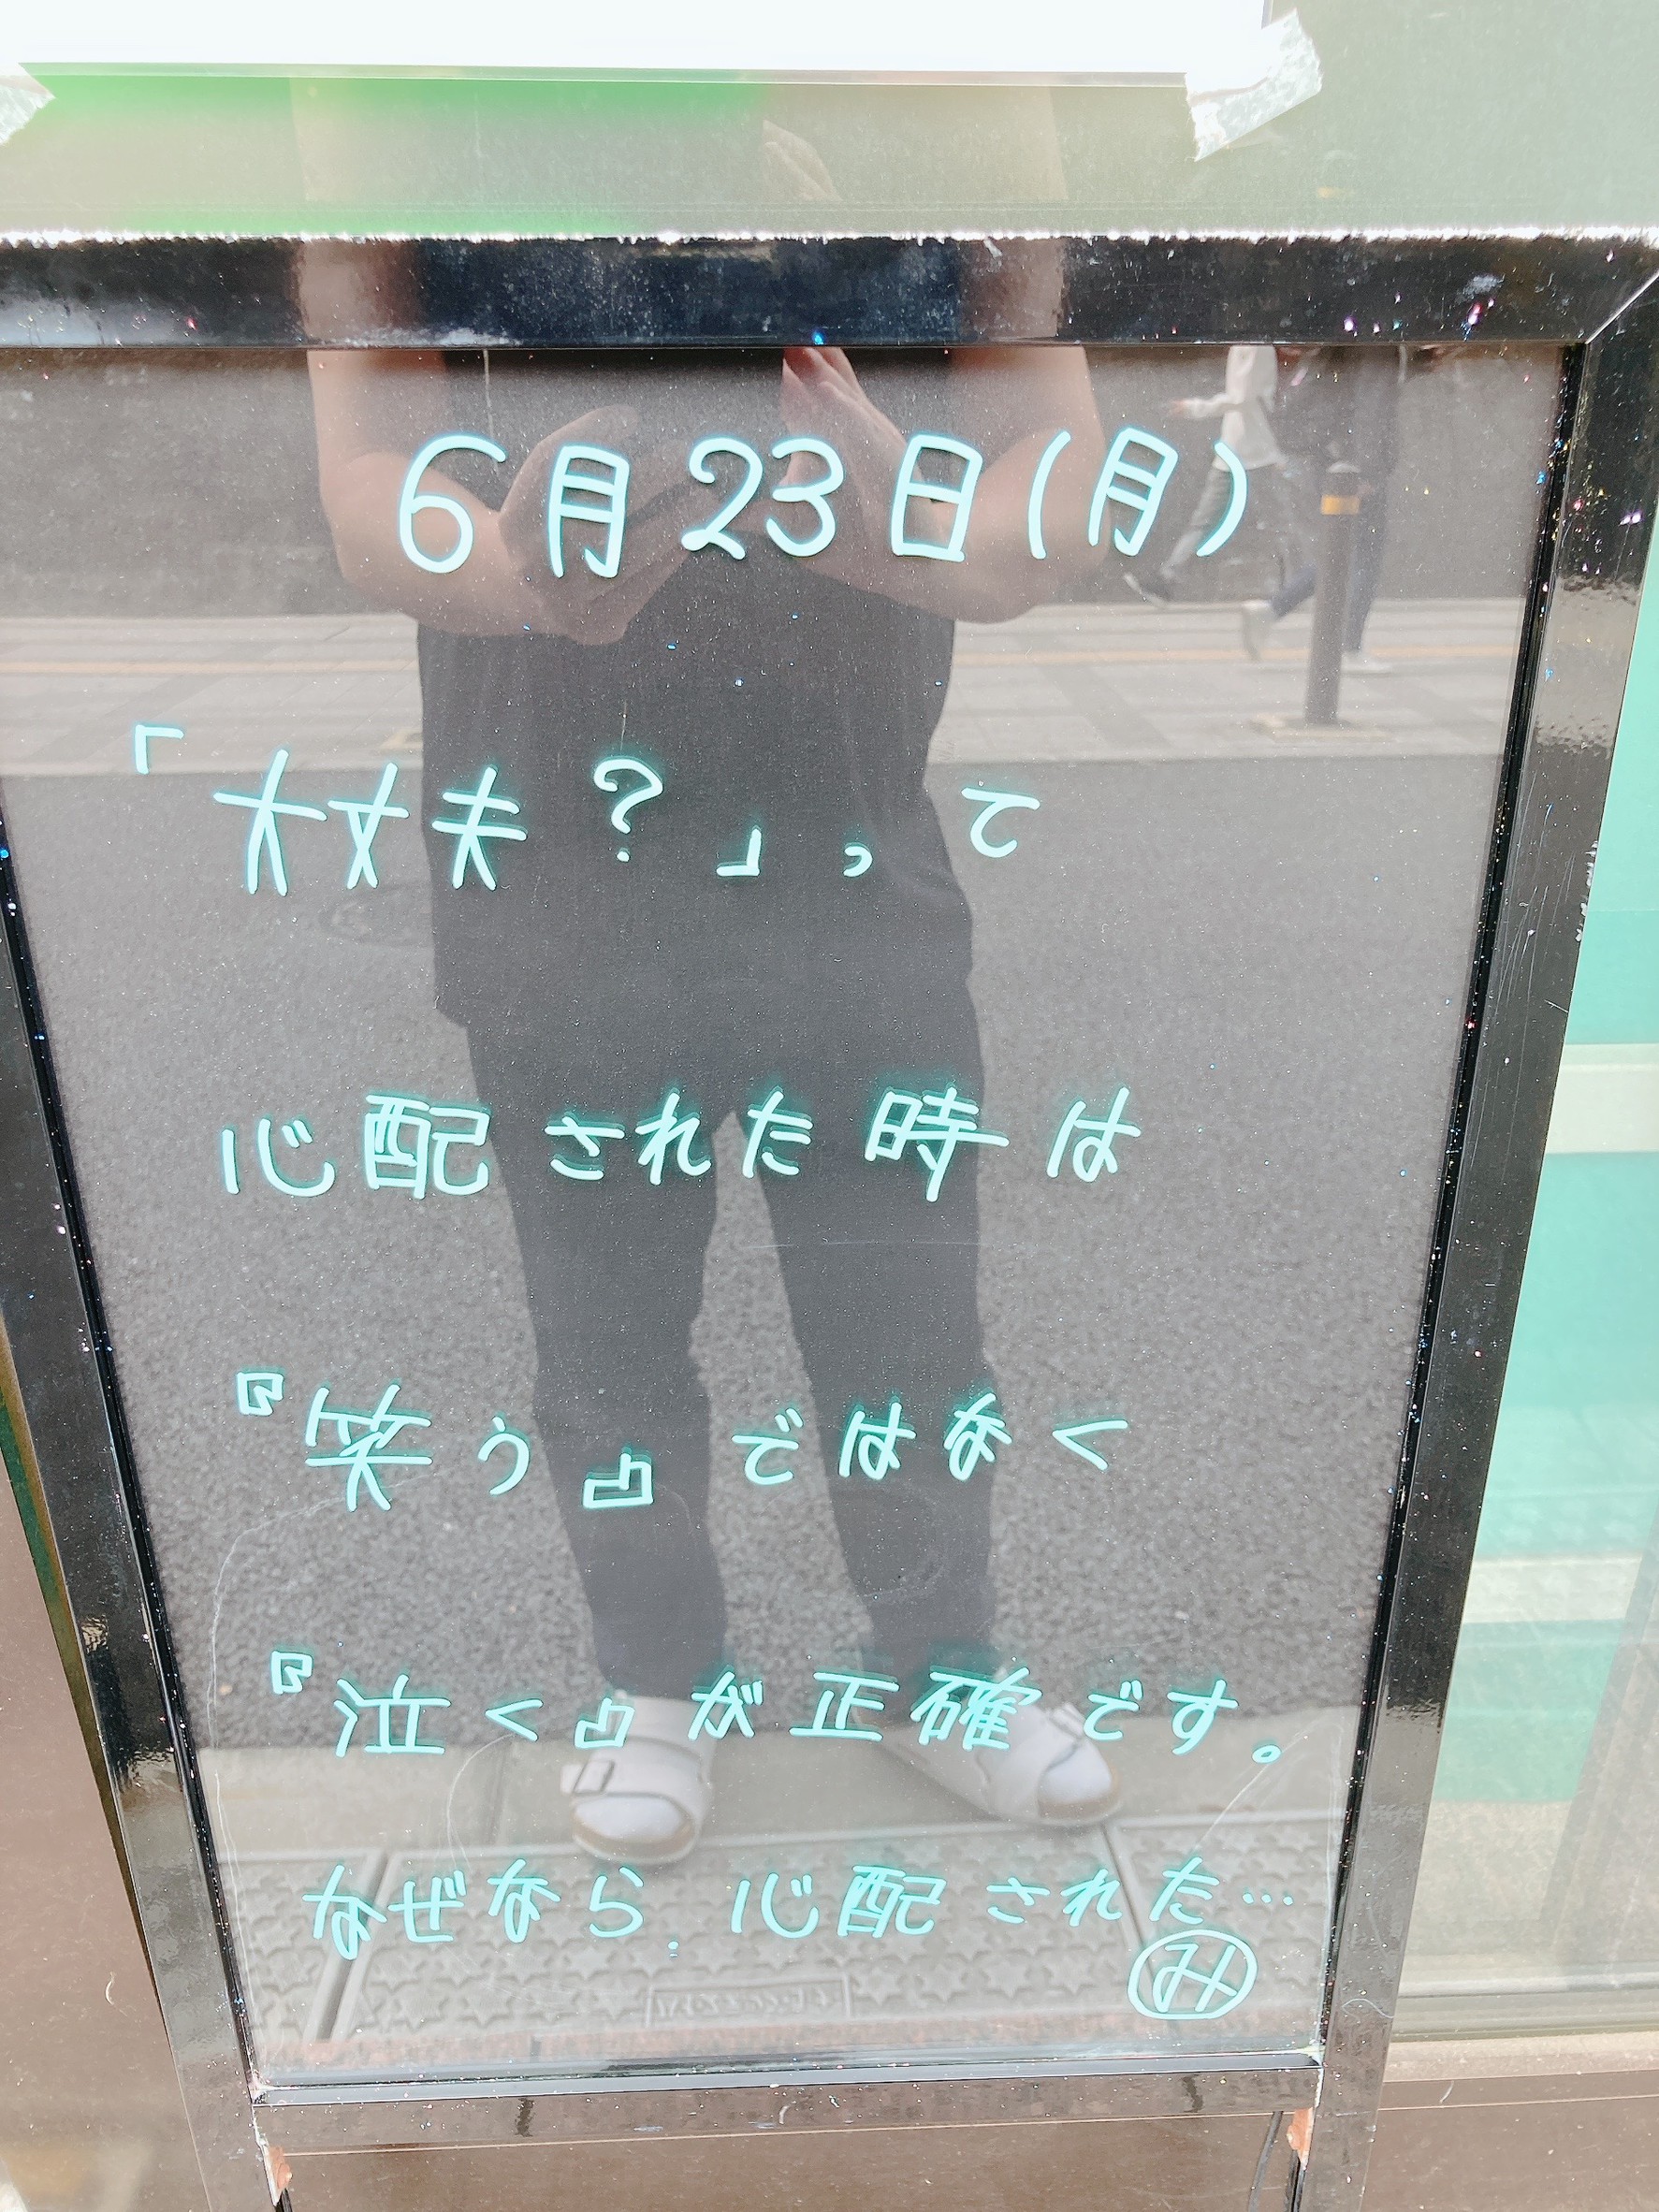 6月23日(月)
「大丈夫?」、て
心配された時は
『笑う』ではなく
『泣く』が正確です。
なぜなら、心配された…
み